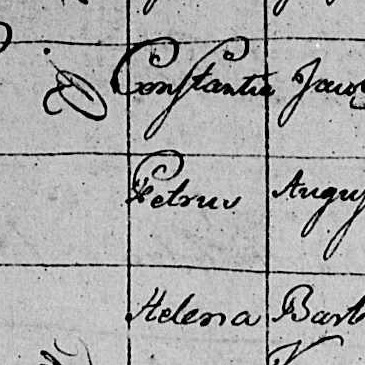 Constantia Jacob
Petrus Augus
Helena Bart